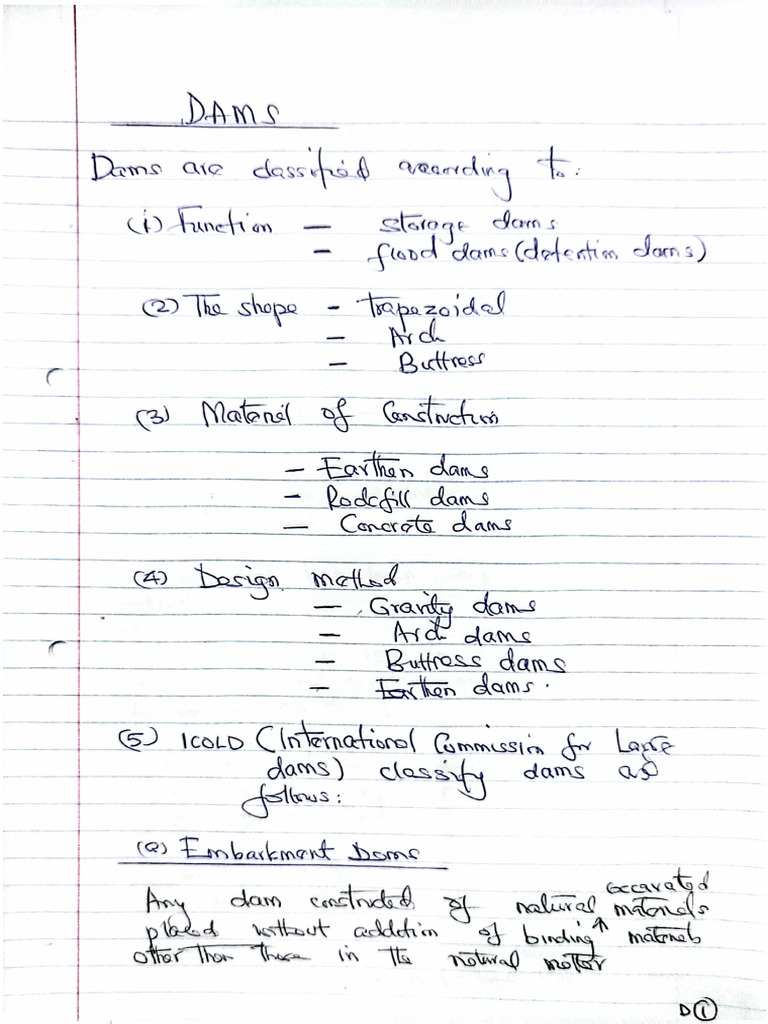 DAMS
Dams are classified according to:
(i) Function — storage dams
— flood dams (detention dams)
(2) The shope - trapezoidal
— Arch
— Buttress
(3) Material of Construction
— Earthen dams
- Rockfill dams
— Concrete dams
(4) Design method
— Gravity dams
— Arch dams
— Buttress dams
— Earthen dams.
(5) ICOLD (International Commission for Large
dams) classify dams as
follows:
(a) Embarkment Dams
excavated
Any dam constructed of natural materials
placed without addition of binding materials
other than those in the natural matter
D (1)